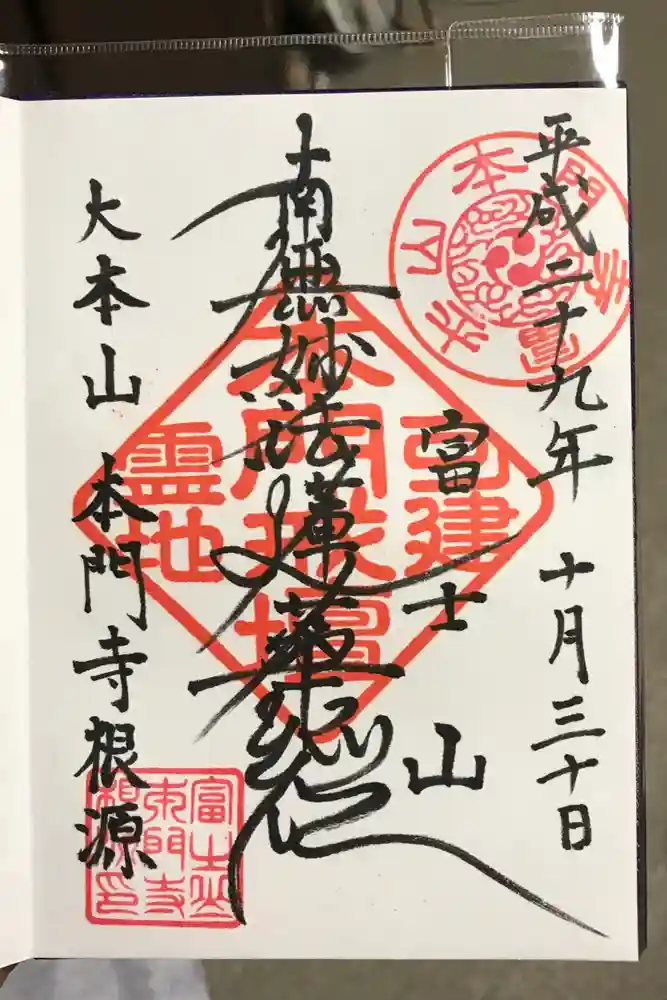 平成二十九年 十月三十日
富士山
南無妙法蓮華経
大本山 本門寺根源
本門戒壇
霊地
富士山
本門寺